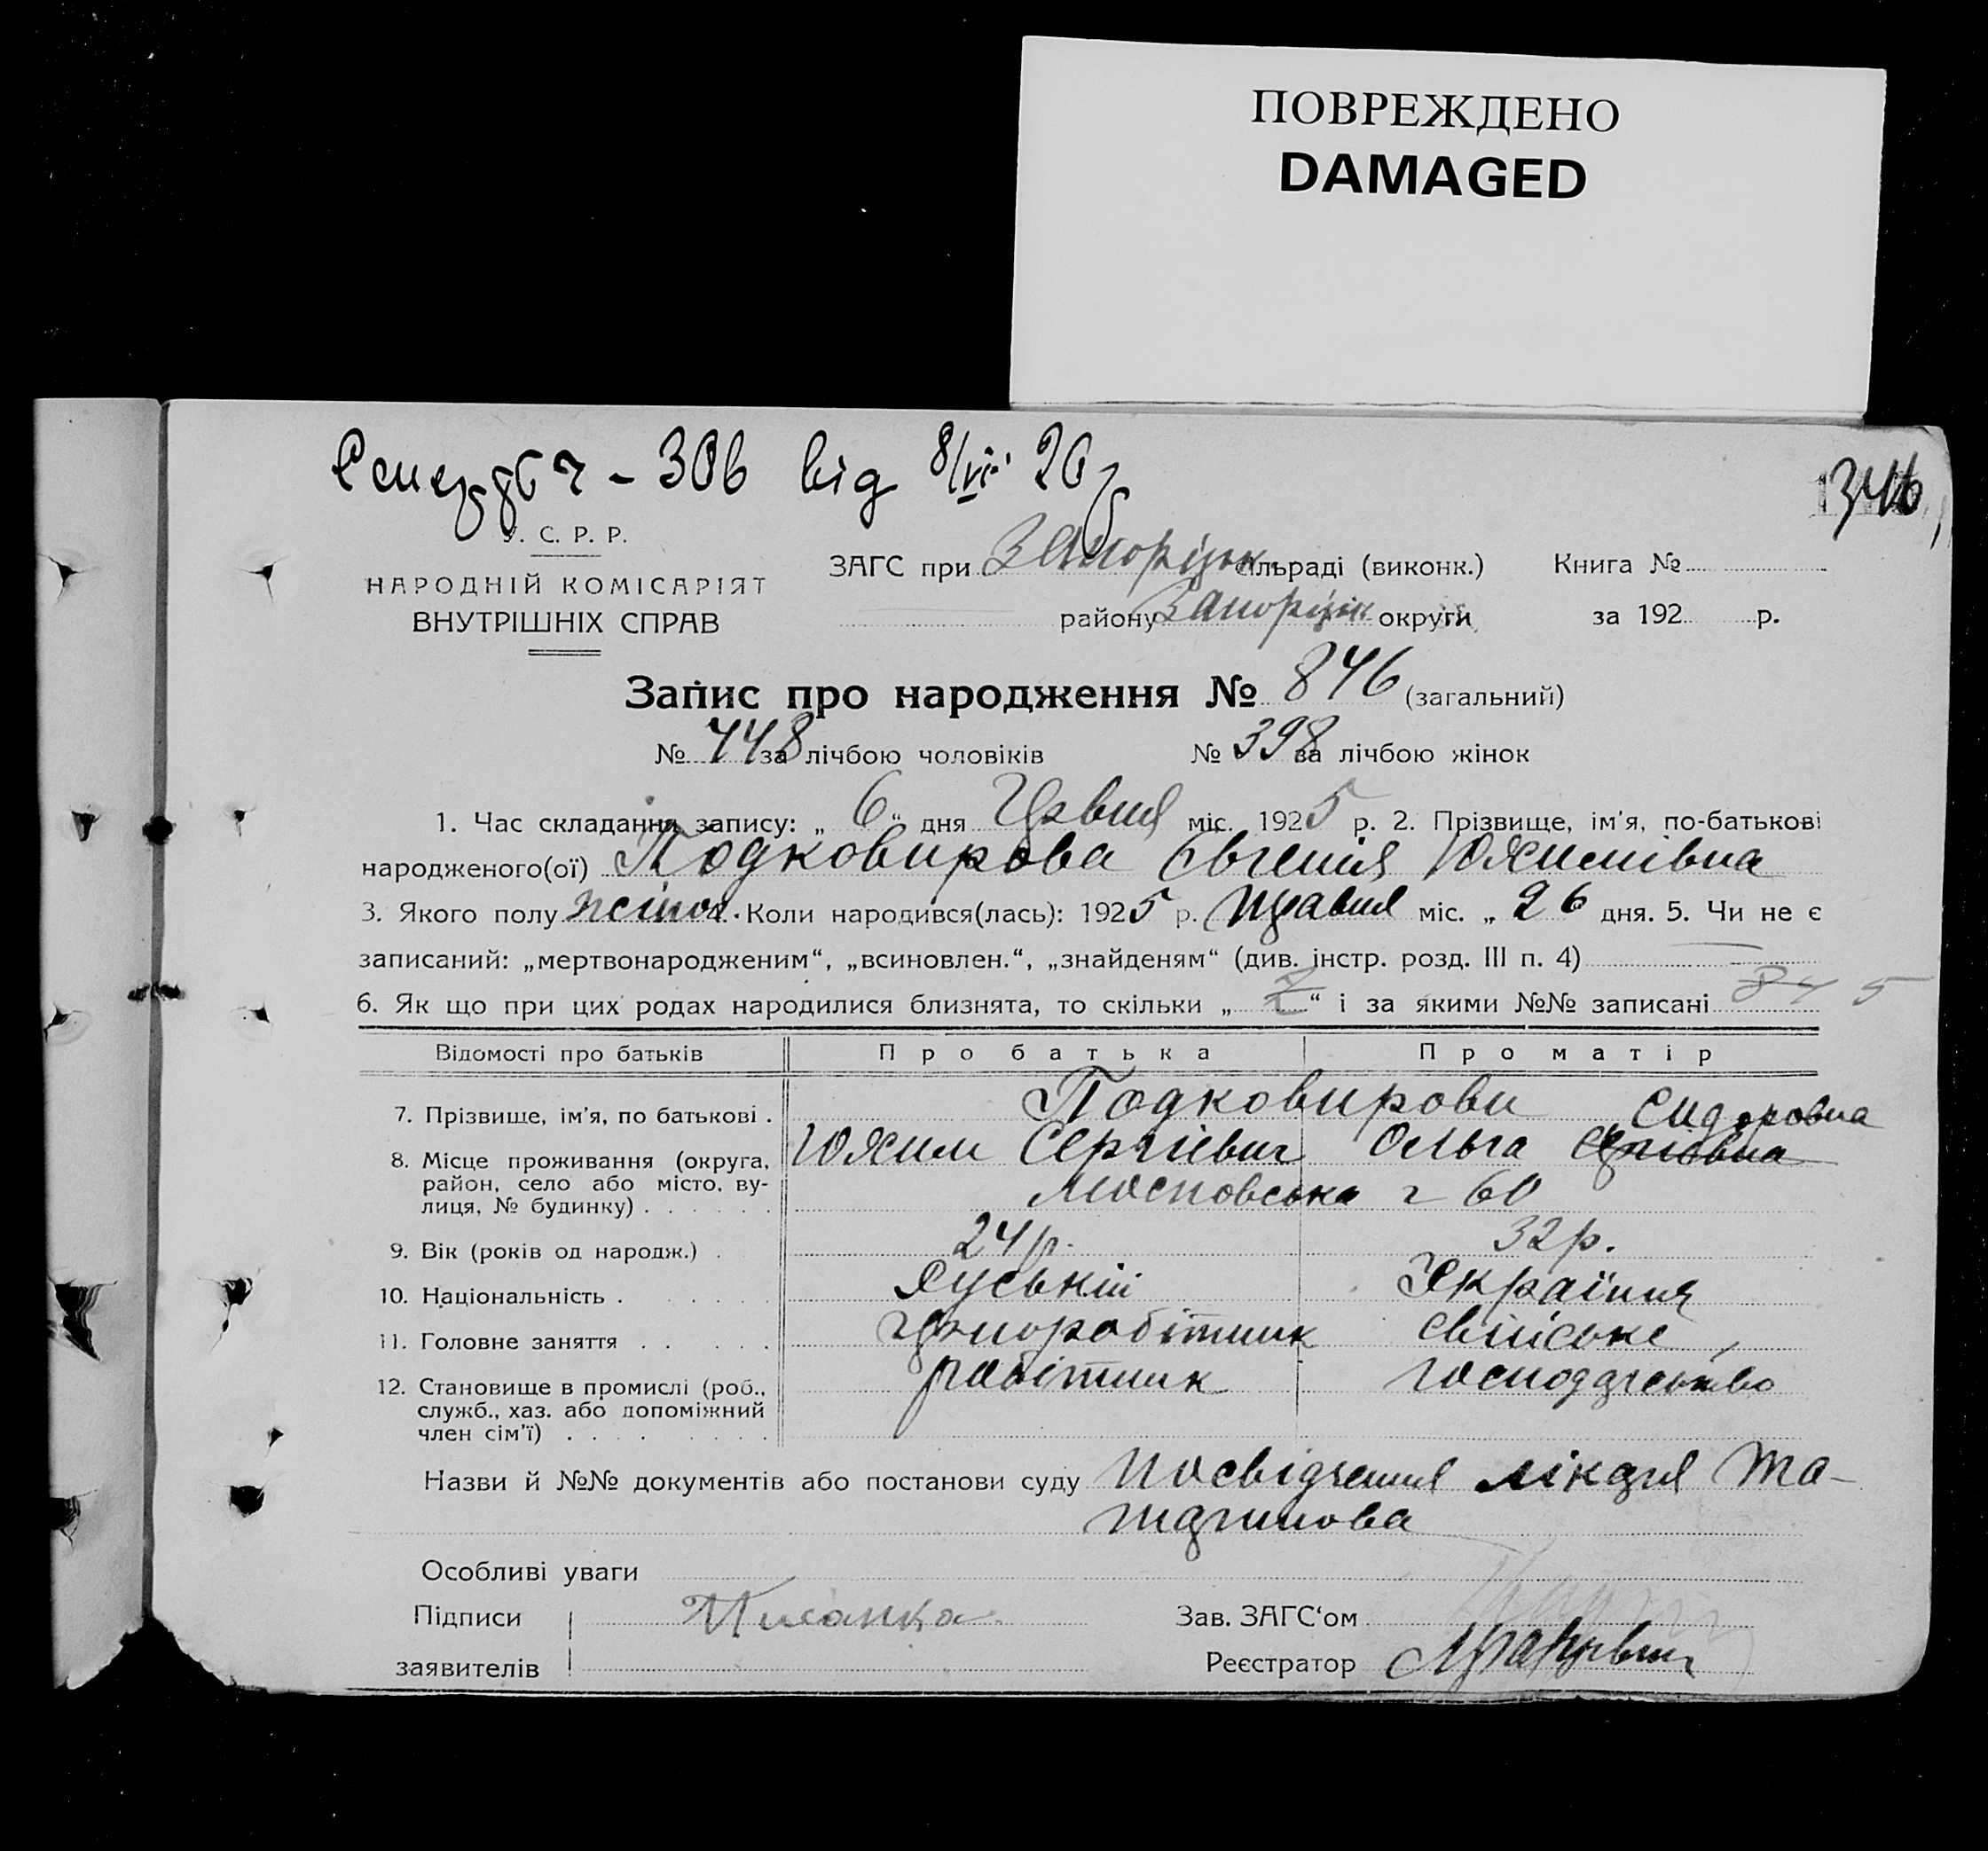 ПОВРЕЖДЕНО
DAMAGED
306 від 8/VII 26 р
346
У. С. Р. Р.
НАРОДНІЙ КОМІСАРІЯТ
ВНУТРІШНІХ СПРАВ
ЗАГС при Запоріжк сільраді (виконк.) Книга №
району Запоріжк округи за 192 р.
Запис про народження № 846 (загальний)
№ 448 за лічбою чоловіків № 398 за лічбою жінок
1. Час складання запису: „ 6 “ дня Червня міс. 1925 р. 2. Прізвище, ім'я, по-батькові
народженого(ої) Подковирова Євгенія Юхимівна
3. Якого полу жіноч. Коли народився(лась): 1925 р. Травня міс. „ 26 дня. 5. Чи не є
записаний: „мертвонародженим“, „всиновлен.“, „знайденям“ (див. інстр. розд. III п. 4)
6. Як що при цих родах народилися близнята, то скільки „ 2 “ і за якими №№ записані 845
Відомості про батьків Про батька Про матір
7. Прізвище, ім'я, по батькові . Подковирови Сидоровна
8. Місце проживання (округа, Юхим Сергієвич Ольга
район, село або місто, ву-
лиця, № будинку) . . . . . . Московська 60
9. Вік (років од народж.) . 24 р. 32 р.
10. Національність . . . . . Руській Україння
11. Головне заняття . . . . . Чорноробітник свійське
12. Становище в промислі (роб., робітник господарство
служб., хаз. або допоміжний
член сім'ї) . . . . . . . .
Назви й №№ документів або постанови суду Посвідчення лікаря
Особливі уваги
Підписи Писанка Зав. ЗАГС‘ом
заявителів Реєстратор